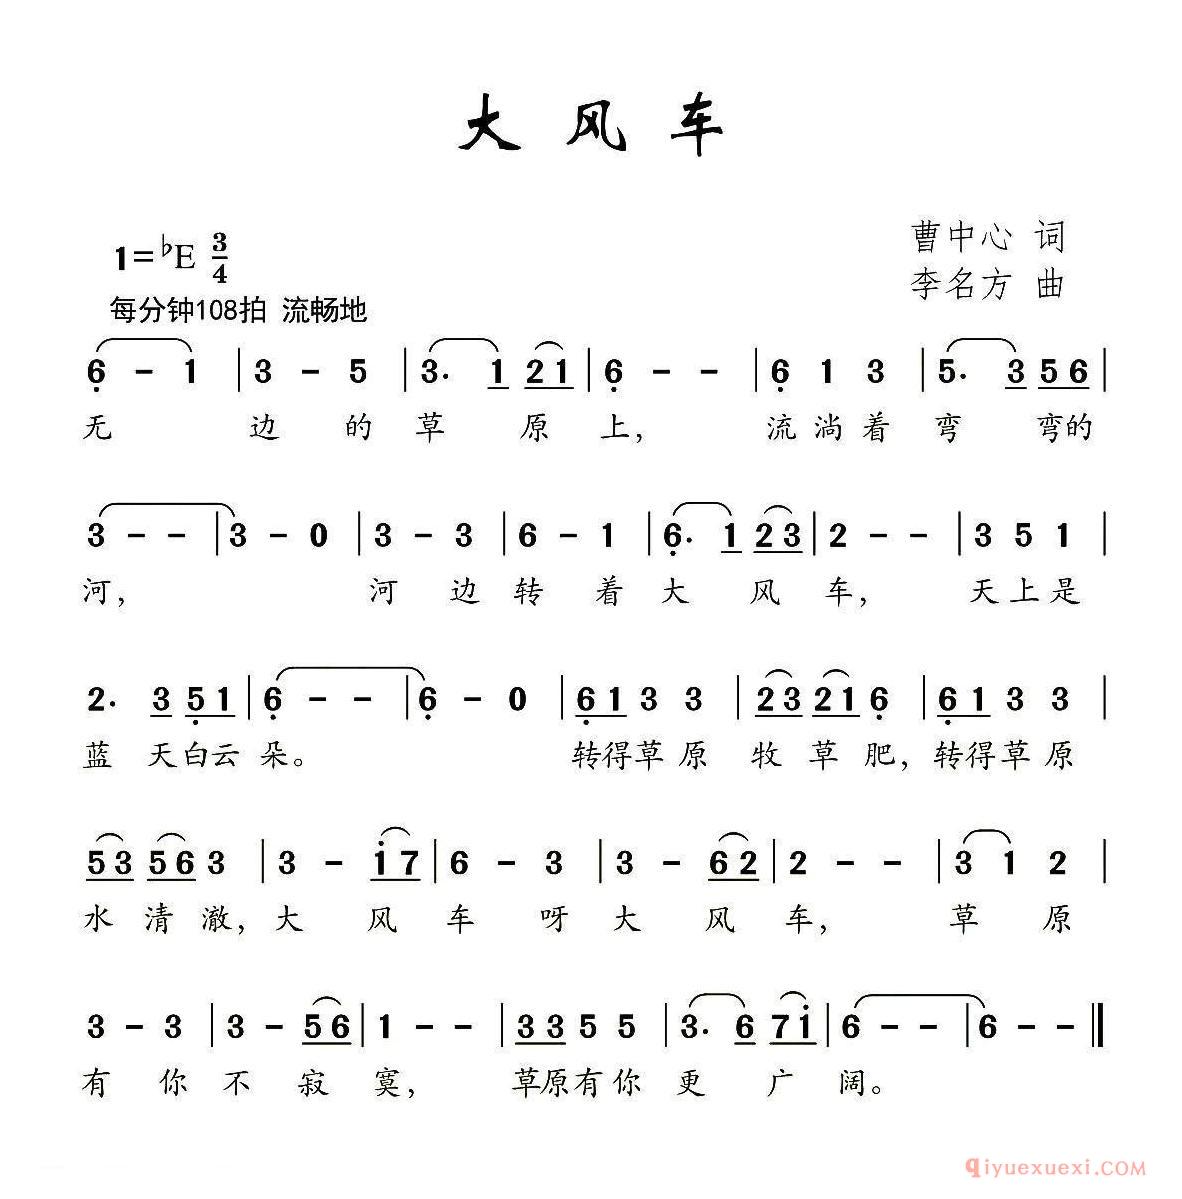 大风车
1=♭E 3/4
曹中心 词
李名方 曲
每分钟108拍 流畅地
6̣ - 1 | 3 - 5 | 3. 1 2 1 | 6̣ - - | 6̣ 1 3 | 5. 3 5 6 |
无 边 的 草 原 上， 流 淌 着 弯 弯的
3 - - | 3 - 0 | 3 - 3 | 6 - 1 | 6̣. 1 2 3 | 2 - - | 3 5 1 |
河， 河 边 转 着 大 风 车， 天 上 是
2. 3 5̣ 1 | 6̣ - - | 6̣ - 0 | 6̣ 1 3 3 | 2 3 2 1 6̣ | 6̣ 1 3 3 |
蓝 天白云 朵。 转得草原 牧 草 肥， 转得草原
5 3 5 6 3 | 3 - i 7 | 6 - 3 | 3 - 6 2 | 2 - - | 3 1 2 |
水 清 澈， 大 风 车 呀 大 风 车， 草 原
3 - 3 | 3 - 5 6 | 1 - - | 3 3 5 5 | 3. 6 7 i | 6 - - | 6 - - ‖
有 你 不 寂 寞， 草原有你 更 广 阔。
qiyuexuexi.COM